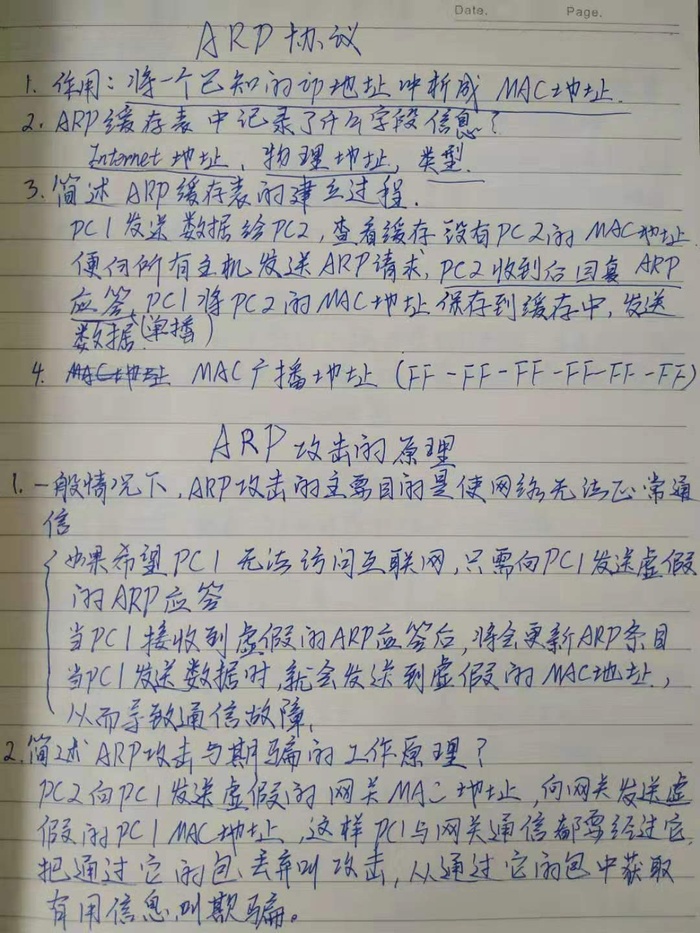 Date.
Page.
ARP协议
1. 作用：将一个已知的IP地址解析成 MAC地址.
2. ARP缓存表中记录了什么字段信息？
Internet 地址、物理地址，类型.
3. 简述 ARP缓存表的建立过程.
PC1发送数据给PC2，查看缓存没有PC2的MAC地址
便向所有主机发送ARP请求，PC2收到后回复 ARP
应答，PC1将PC2的MAC地址保存到缓存中，发送
数据(单播)
4. MAC地址 MAC广播地址 (FF-FF-FF-FF-FF-FF)
ARP攻击的原理
1. 一般情况下，ARP攻击的主要目的是使网络无法正常通
信
如果希望PC1 无法访问互联网，只需向PC1发送虚假
的ARP应答
当PC1接收到虚假的ARP应答后，将会更新ARP条目
当PC1发送数据时，就会发送到虚假的MAC地址，
从而导致通信故障.
2. 简述ARP攻击与期骗的工作原理？
PC2向PC1发送虚假的网关MAC地址，向网关发送虚
假的PC1 MAC地址，这样PC1与网关通信都要经过它，
把通过它的包丢弃叫攻击，从通过它的包中获取
有用信息叫欺骗。